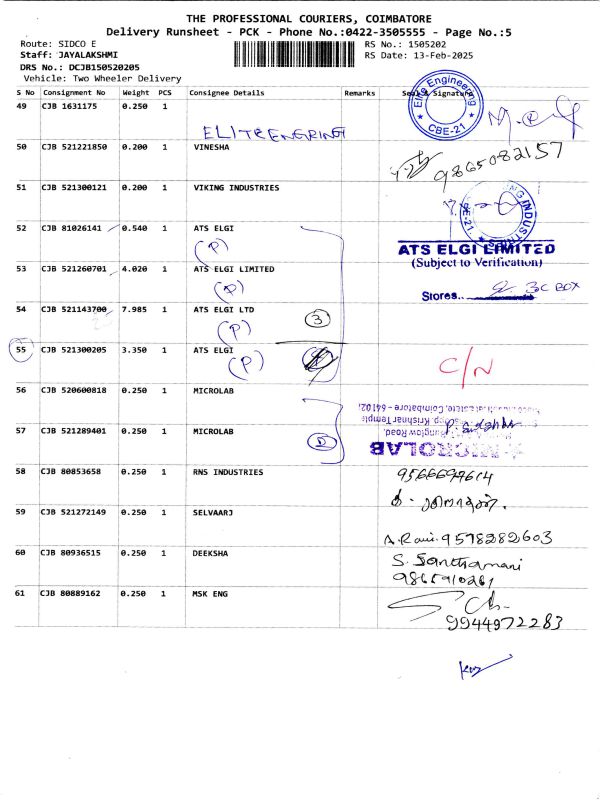 THE PROFESSIONAL COURIERS, COIMBATORE
Delivery Runsheet - PCK - Phone No.:0422-3505555 - Page No.:5
Route: SIDCO E RS No.: 1505202
Staff: JAYALAKSHMI RS Date: 13-Feb-2025
DRS No.: DCJB150520205
Vehicle: Two Wheeler Delivery
S No Consignment No Weight PCS Consignee Details Remarks Seal & Signature
49 CJB 1631175 0.250 1
ELITE ENGRING
Engineering
CBE-21
50 CJB 521221850 0.200 1 VINESHA
9865082157
51 CJB 521300121 0.200 1 VIKING INDUSTRIES
INDUSTRIES
52 CJB 81026141 0.540 1 ATS ELGI
(P)
ATS ELGI LIMITED
(Subject to Verification)
53 CJB 521260701 4.020 1 ATS ELGI LIMITED
(P)
Stores.. BOX
54 CJB 521143700 7.985 1 ATS ELGI LTD
(P) 3
55 CJB 521300205 3.350 1 ATS ELGI
(P)
C/N
56 CJB 520600818 0.250 1 MICROLAB
57 CJB 521289401 0.250 1 MICROLAB
D
MICROLAB
58 CJB 80853658 0.250 1 RNS INDUSTRIES
59 CJB 521272149 0.250 1 SELVAARJ
A.Ravi. 9578282603
60 CJB 80936515 0.250 1 DEEKSHA
S. Santhamani
61 CJB 80889162 0.250 1 MSK ENG
9944972283